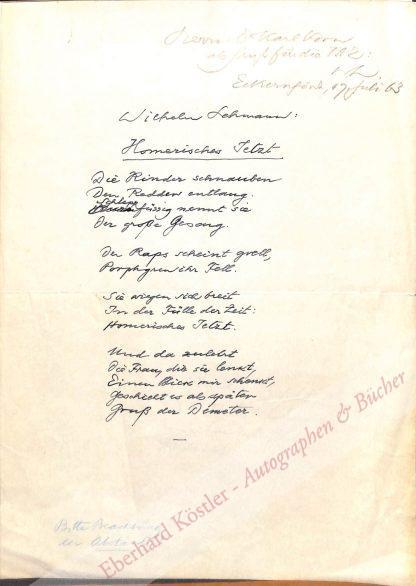 Herrn Karl Korn
als Gruß für die FAZ:
Eckernförde, 17. Juli 63
Wilhelm Lehmann:
Homerisches Jetzt
Die Rinder schnauben
Den Redder entlang.
Schleppfüssig nennt sie
Der große Gesang.
Der Raps scheint grell,
Porphyren ihr Fell.
Sie wiegen sich breit
In der Fülle der Zeit:
Homerisches Jetzt.
Und da zuletzt
Die Frau, die sie lenkt,
Einen Blick mir schenkt,
Geschieht es als späten
Gruß der Demeter.
Bitte Beachtung
der
Eberhard Köstler - Autographen & Bücher